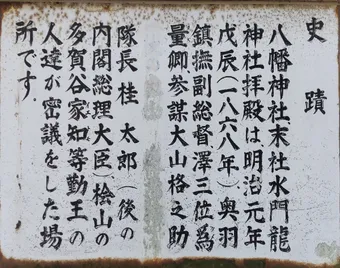 史蹟
八幡神社末社水門龍
神社拝殿は明治元年
戊辰(一八六八年)奥羽
鎮撫副総督澤三位為
量卿参謀大山格之助
隊長桂太郎(後の
内閣総理大臣)桧山の
多賀谷家知等勤王の
人達が密議をした場
所です.